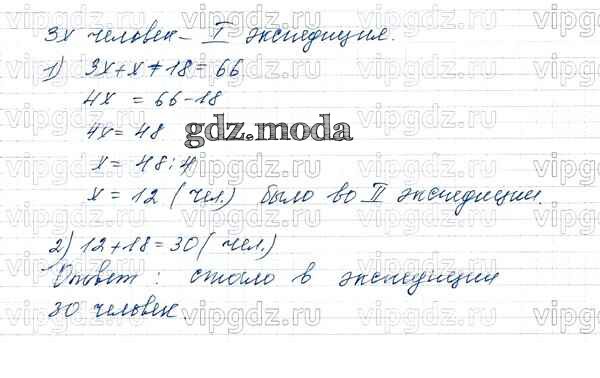 3х человек – I экспедиция.
1) 3х+х+18=66
4х = 66-18
4х= 48
gdz.moda
х= 48:4
х = 12 (чел.) было во II экспедиции.
2) 12+18=30( чел.)
Ответ: стало в экспедиции
30 человек.
vipgdz.ru